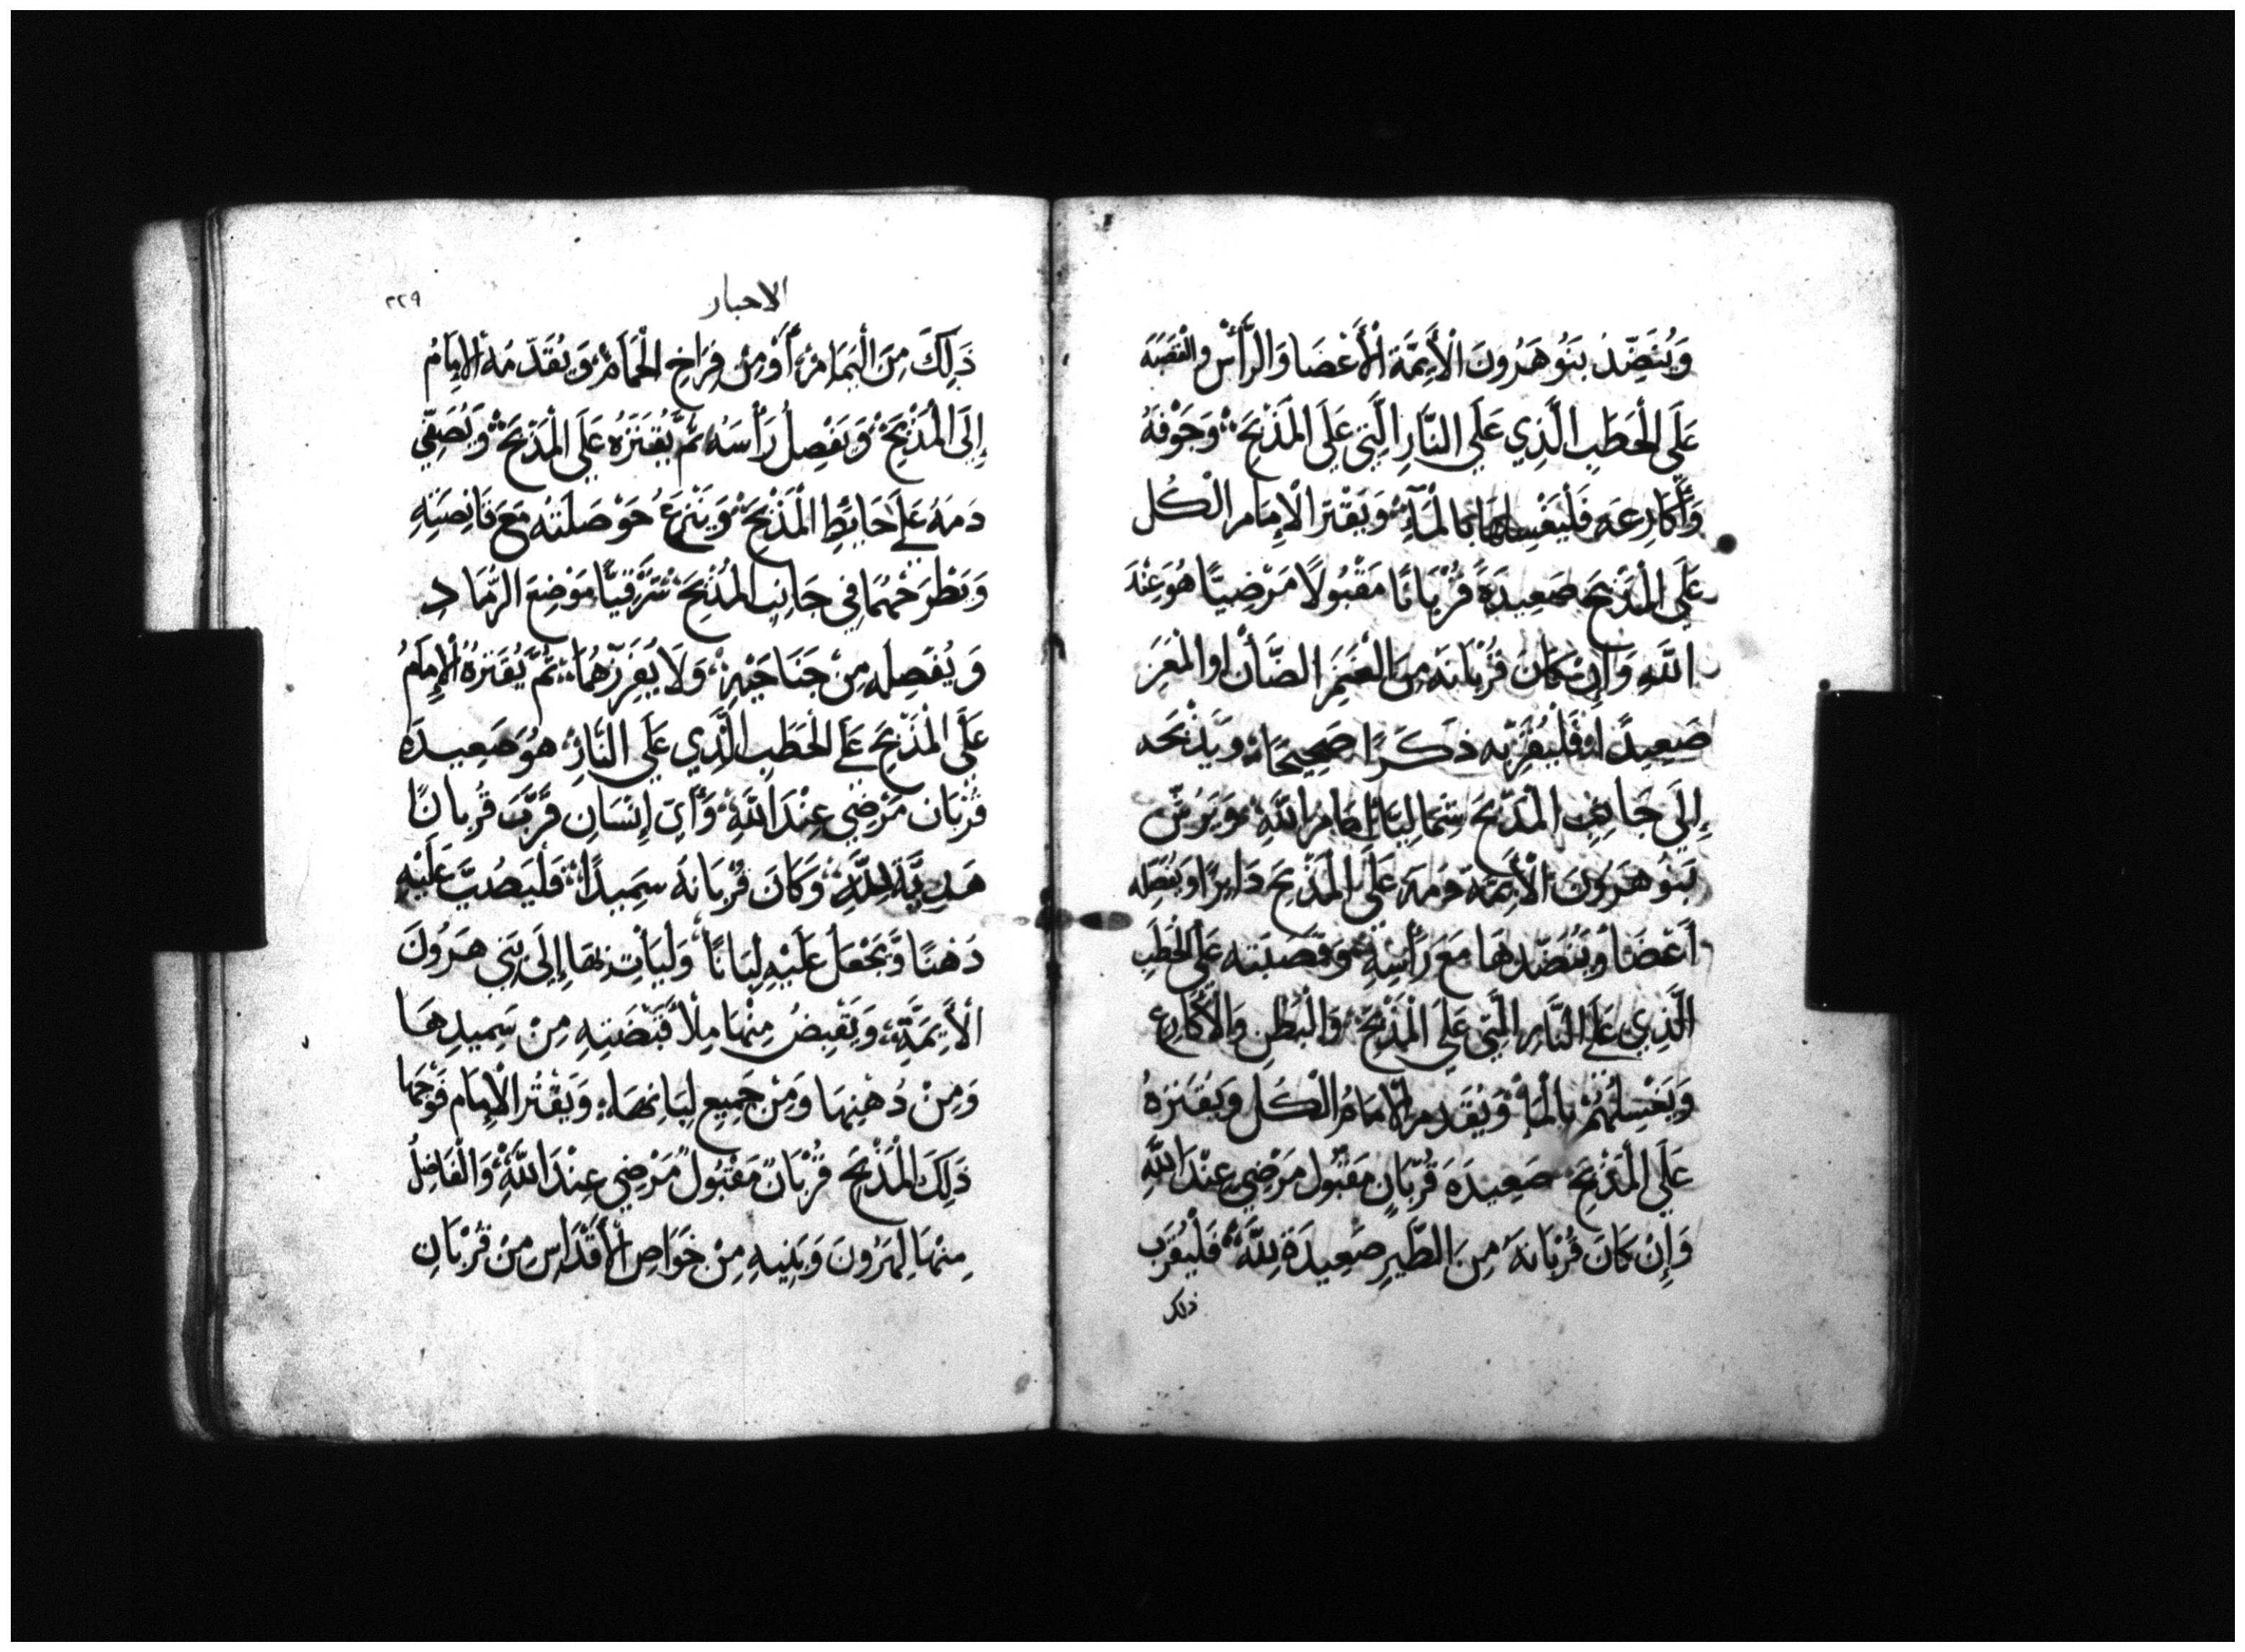 وَيُنَضِّدُ بَنُو هَرُونَ الْأَيِمَّة الْأَعْضَا وَالرَّأْسْ والقصَبَه
عَلَى الحَطَبِ الَّذِي عَلَى النَّارِ الَّتِي عَلَى المَذْبَحْ وَجَوْفَهُ
وَأَكَارِعَه فَلْيَغْسِلهَا بالمَآءِ وَيَقْتر الْإِمَام الْكُل
عَلَى المَذْبَحِ صَعِيدَةً قُرْبَانًا مَقْبُولًا مَرْضِيًا هُوَ عِنْدَ
اللهِ وَإِنْ كَانَ قُرْبَانَهُ مِنَ الْغَنَم الضَّأْن او المَعِز
صَعِيدًا فَلْيُقَرِّبه ذَكَرًا صَحِيحًا وَيَذْبَحَه
إِلَى جَانِبِ المَذْبَحَ شَمَالِيًا امَام اللهِ وَيَرُشّ
بَنُو هَرُونَ الْأَيِمَّة دَمَه عَلَى المَذْبَحِ دَايِرًا وَيُفَصِّله
أَعْضَا وَيُنَضِّدهَا مَعَ رَأْسِهِ وَقَصَبَته عَلَى الحَطَبِ
الَّذِي عَلَى النَّارِ الَّتِي عَلَى الْمَذْبَحْ وَالْبَطْنِ وَالْأَكَارِع
وَيَغْسِلهُمْ بِالمَاْ وَيُقَدم الْامَامُ الْكُل وَيُقَترَهُ
عَلَى الْمَذْبَحْ صَعِيدَه قُرْبَان مَقْبُول مَرْضِي عِنْدَ اللهِ
وَإِنْ كَانَ قُرْبَانَهُ مِنَ الطَّيرِ صَعِيدَةً لِلَّهْ فَلْيُقَرِّب
ذلك
الاحبار
٢٢٩
ذَلِكَ مِنَ الْيَمَامْ أَوْ مِنْ فِرَاخ الْحَمَامْ وَيُقَدّمَهُ الإِمَامُ
إِلَى الْمَذْبَحْ وَيَفْصِلُ رَأْسَهُ ثُمَّ يُقَترَهُ عَلَى الْمَذْبَحْ وَيُصَفّي
دَمَهُ عَلَى حَايِطِ الْمَذْبَحْ وَيَنْزِعُ حَوْصَلَته مَعَ قَانِصَتِهِ
وَيَطْرَحْهُمَا فِي جَانِبِ المَذْبَحْ شَرْقِيًّا مَوْضِعَ الرَّمَادِ
وَيُفَصِله مِنْ جَنَاحَيْهِ وَلَا يُفَرِزْهُمَا ثُمَّ يُقَترَهُ الْإِمَامُ
عَلَى الْمَذْبَحِ عَلَى الحَطَبِ الَّذِي عَلَى النَّارِ هُوَ صَعِيدَه
قُرْبَان مَرْضِي عِنْدَ اللهِ وَأَيّ إِنْسَانٍ قَرَّبَ قُرْبانًا
هَدِيَّة لِلَّهِ وَكَانَ قُرْبَانَهُ سَمِيدًا فَليَصُبَّ عَلَيْهِ
دَهنًا وَيَجْعَلُ عَلَيْهِ لِبَانًا وَليَأْتِ بهَا إِلَى بَنِي هَرُونَ
الْأَيِمَّة وَيَقْبِضُ مِنْهَا مِلْأَ قَبْضَتِهِ مِنْ سَمِيدِهَا
وَمِنْ دُهْنِهَا وَمِنْ جَمِيعِ لِبَانِهَا وَيَقْتُر الْإِمَام فَوْحهَا
ذَلِكَ المَذْبَحِ قُرْبَانٌ مَقْبُولٌ مَرْضِي عِنْدَ اللهِ وَالْفَاضِلُ
مِنْهَا لِهَرُونَ وَبَنِيهِ مِنْ خَوَاص الْأَقْدَاس مِنْ قُرْبَانِ